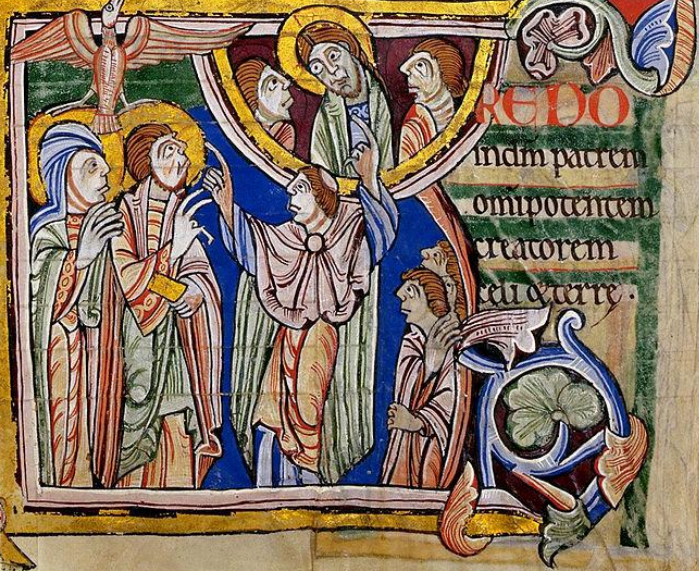 REDO
indm patrem
omipotentem
creatorem
celi & terrę·